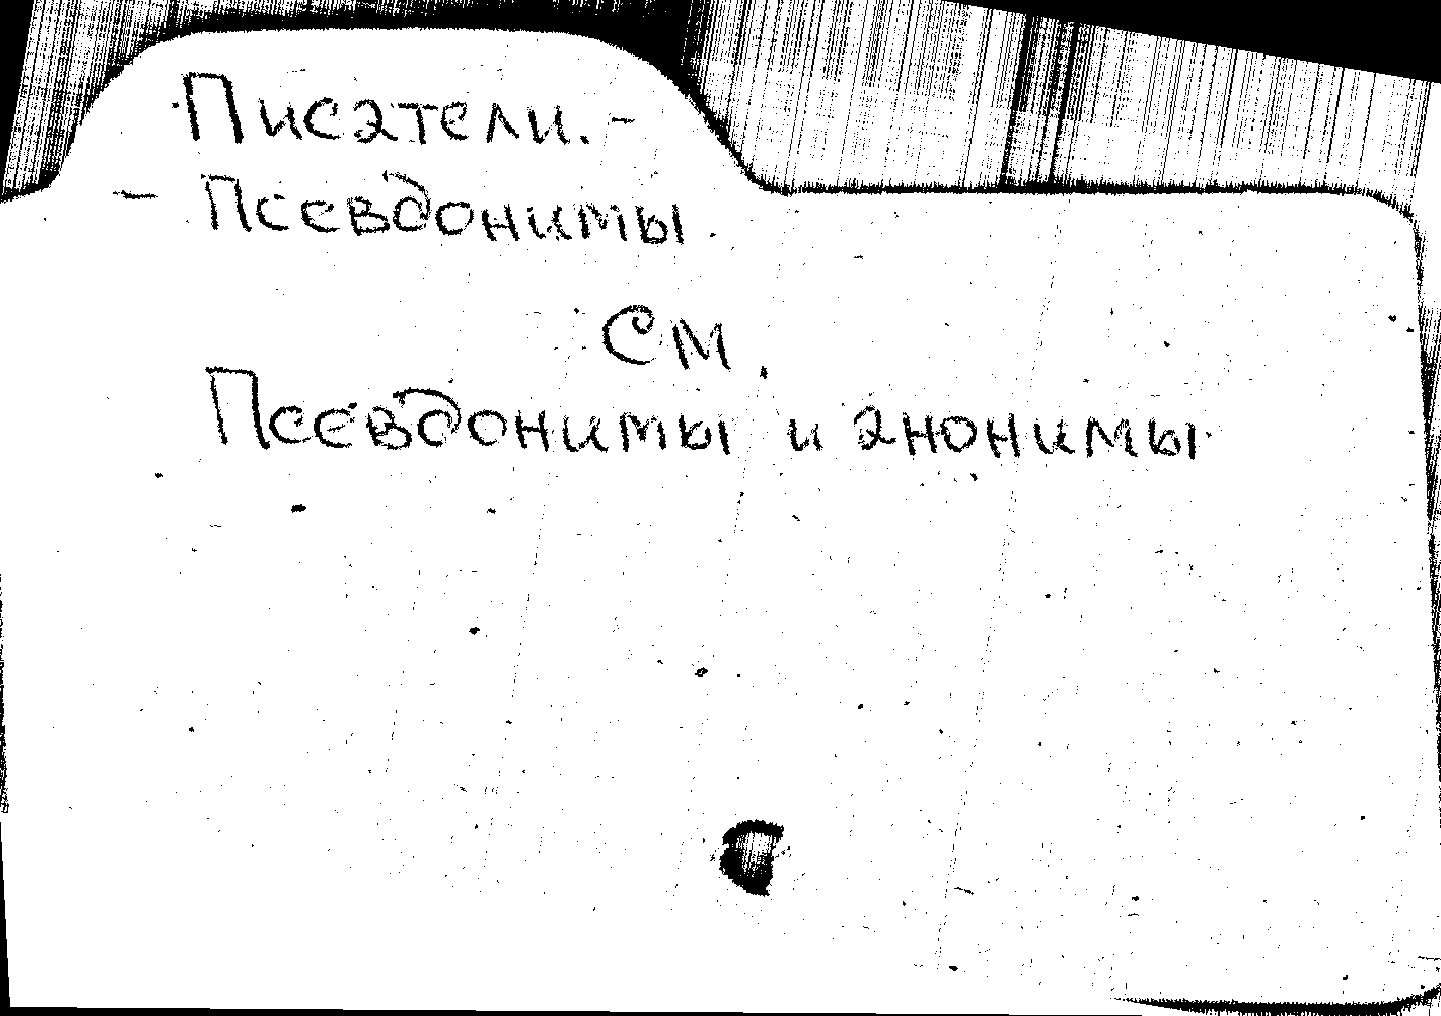 Писатели. -
- Псевдонимы
см.
Псевдонимы и анонимы